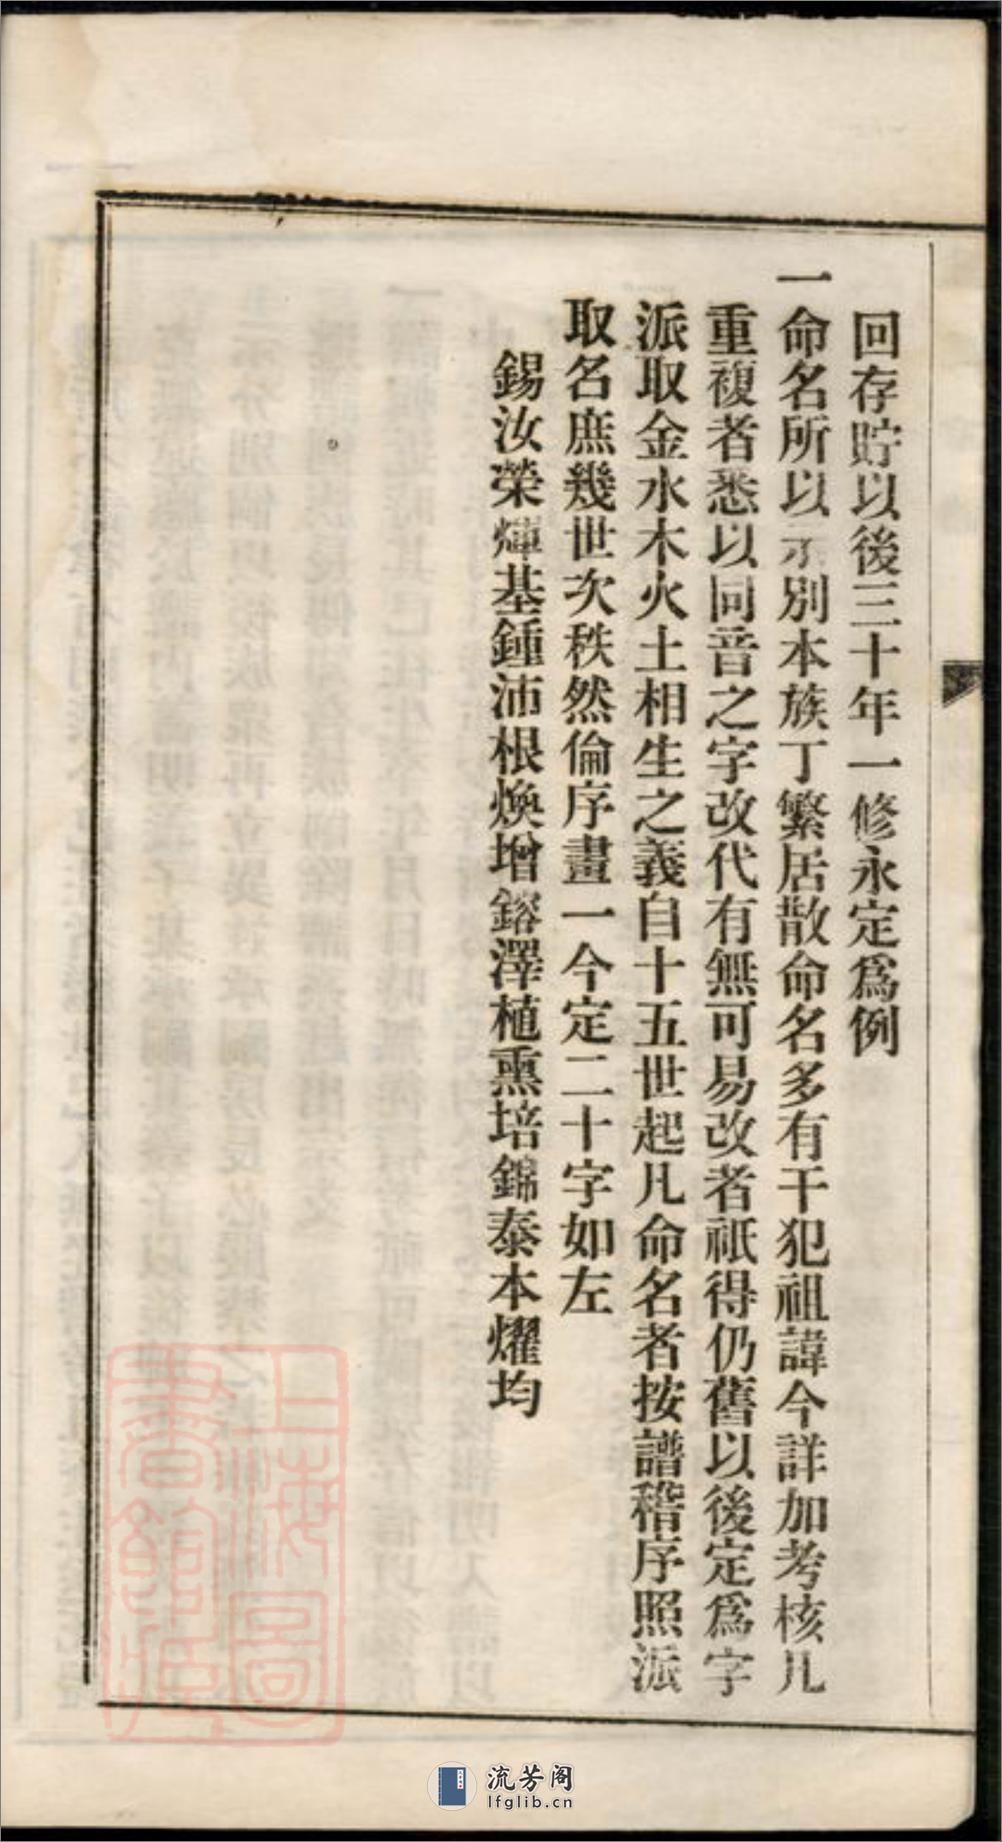 回存貯以後三十年一修永定爲例
一命名所以示別本族丁繁居散命名多有干犯祖諱今詳加考核凡
重複者悉以同音之字改代有無可易改者祇得仍舊以後定爲字
派取金水木火土相生之義自十五世起凡命名者按譜稽序照派
取名庶幾世次秩然倫序畫一今定二十字如左
錫汝榮煇基鍾沛根煥增鎔澤植熏培錦泰本燿均
上海圖書館藏
流芳阁
lfglib.cn